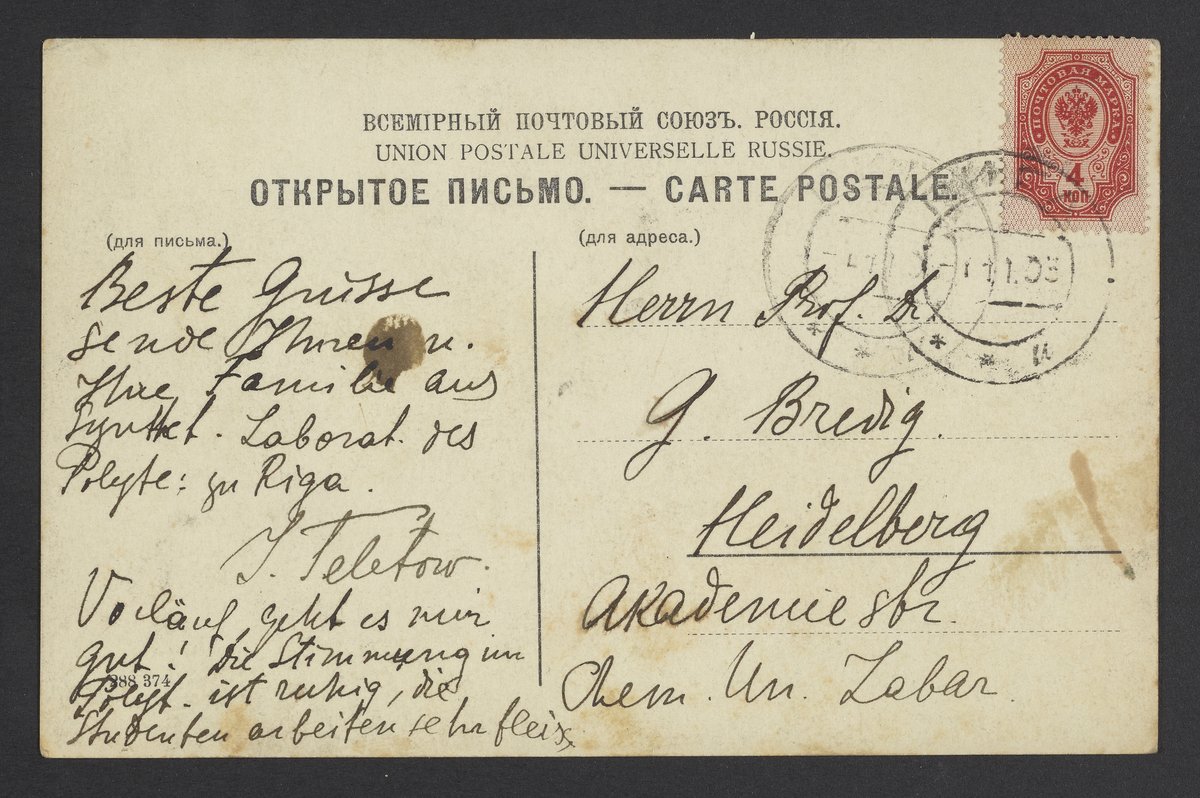 ВСЕМІРНЫЙ ПОЧТОВЫЙ СОЮЗЪ. РОССІЯ.
UNION POSTALE UNIVERSELLE RUSSIE.
ОТКРЫТОЕ ПИСЬМО. — CARTE POSTALE.
ПОЧТОВАЯ МАРКА
4
КОП.
(для письма.)
Beste Grüsse
sende Ihnen u.
Ihre Familie aus
Synthet. Laborat. des
Polyte: zu Riga.
J. Teletow.
Vorläuf, geht es mir
gut! Die Stimmung im
Polyt. ist ruhig, die
Studenten arbeiten sehr fleis
388 374
(для адреса.)
Herrn Prof. Dr.
G. Bredig.
Heidelberg
Akademiestr.
Chem. Un. Labar.